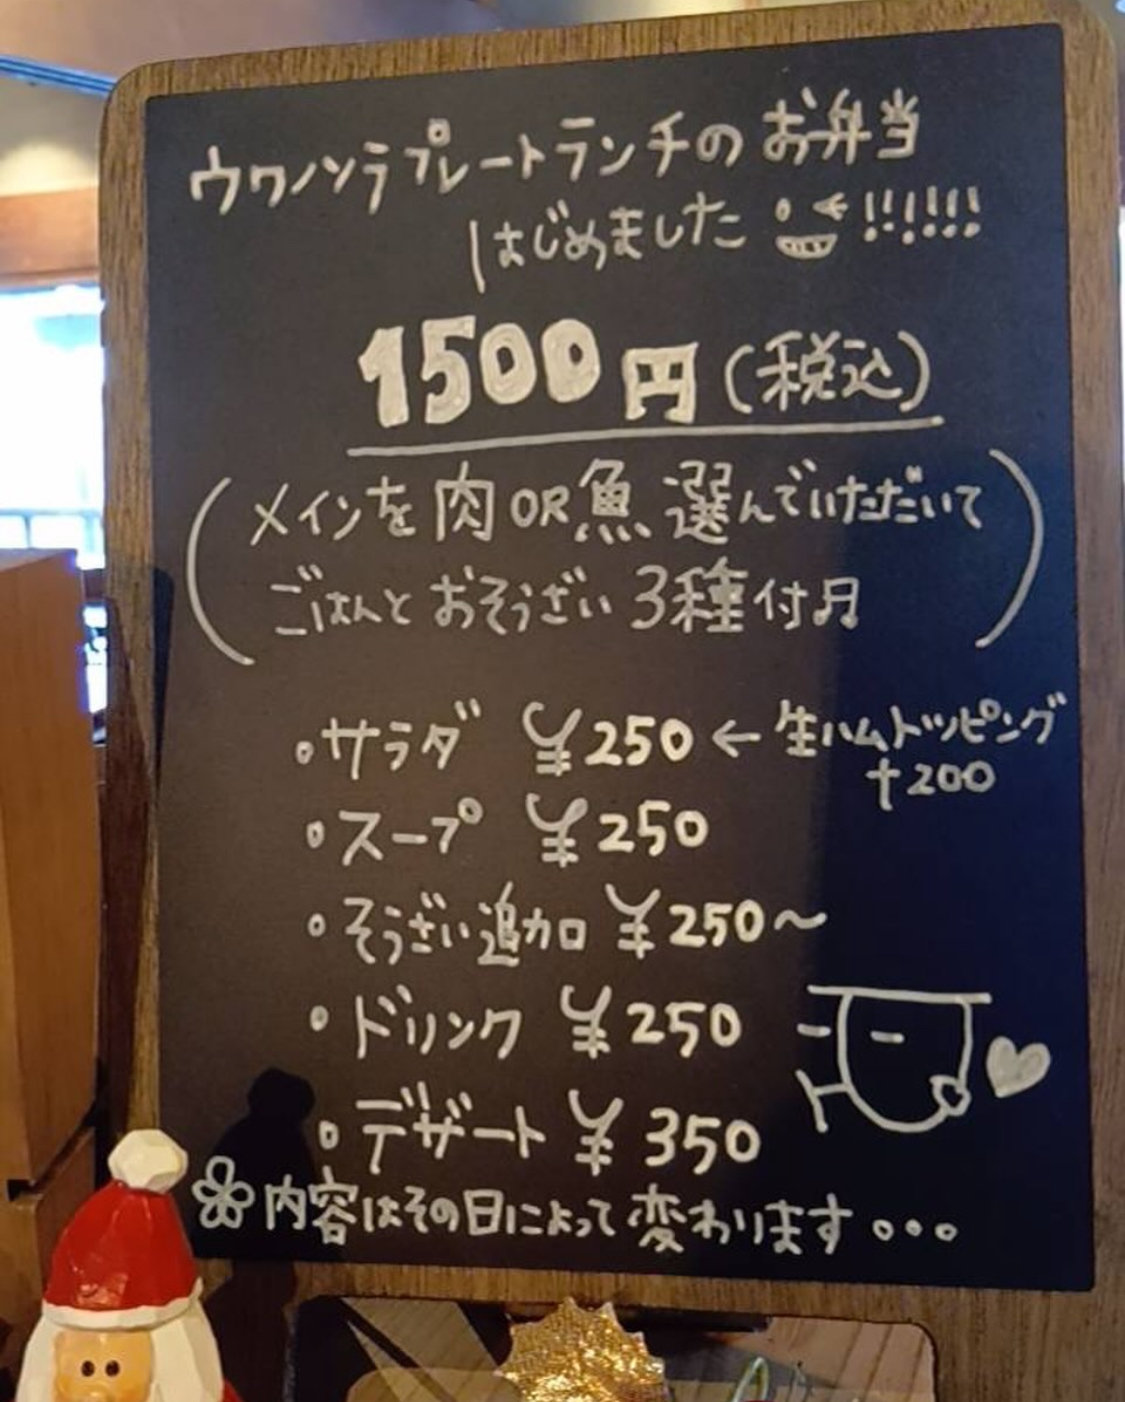 ウワノソラプレートランチのお弁当
はじめました!!!!!!
1500円(税込)
(メインを肉OR魚選んでいただいて
ごはんとおそうざい3種付月)
・サラダ ¥250←生ハムトッピング
+200
・スープ ¥250
・そうざい追加 ¥250~
・ドリンク ¥250
・デザート ¥350
内容はその日によって変わります...